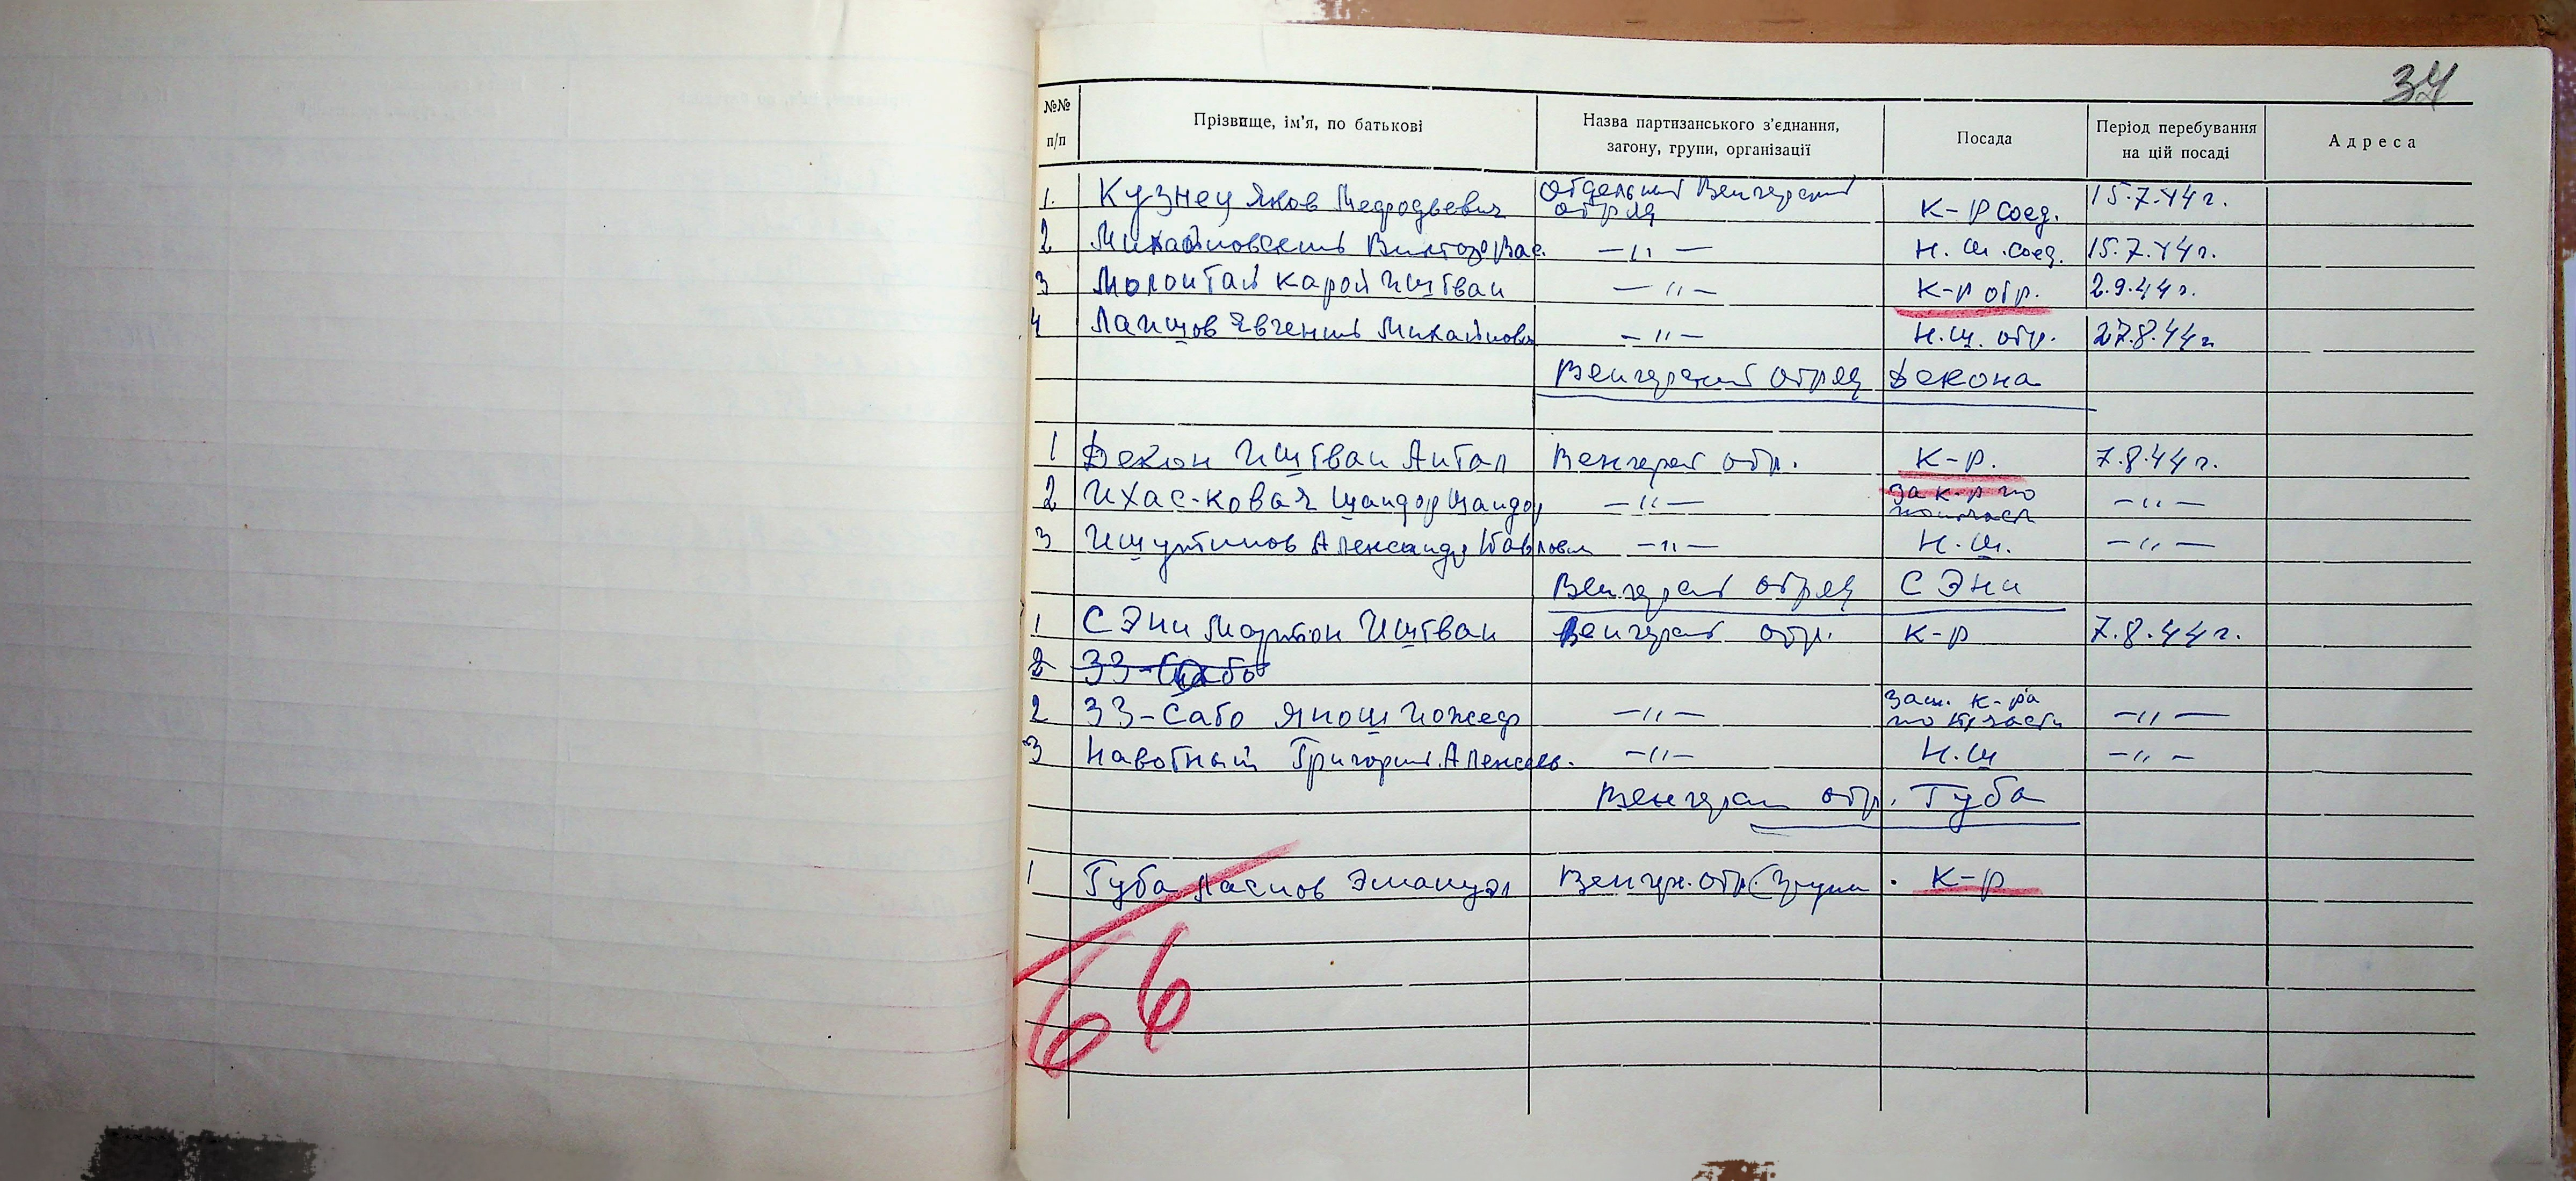 34
№№ п/п Прізвище, ім'я, по батькові Назва партизанського з'єднання, загону, групи, організації Посада Період перебування на цій посаді Адреса
1. Кузнец Яков Отдельный Венгерский отряд К-р соед. 15.7.44 г.
2 Михайловский Виктор Вас. —"— Н. ш. соед. 15.7.44 г.
3 Молонтай Карой Иштван —"— К-р отр. 2.9.44 г.
4 Лапшов Евгений Михайлович —"— Н.ш. отр. 27.8.44 г
Венгерский отряд Декона
1 Декон Иштван Антал Венгерск отр. К-р. 7.8.44 г.
2 Ихас-Ковач Шандор Шандор —"— за к-р по —"—
3 Ишутинов Александр Павлович —"— Н.ш. —"—
Венгерск отряд СЭни
1 СЭни Мартон Иштван Венгерск отр. К-р 7.8.44 г.
2 ЗЗ-Сабо
2 ЗЗ-Сабо Янош Йожеф —"— Зам. к-ра по части —"—
3 Навотный Григорий Алексеев. —"— Н.ш —"—
Венгерск отр. Губа
1 Губа Ласлов Эмануэл Венгр. отр. К-р
66